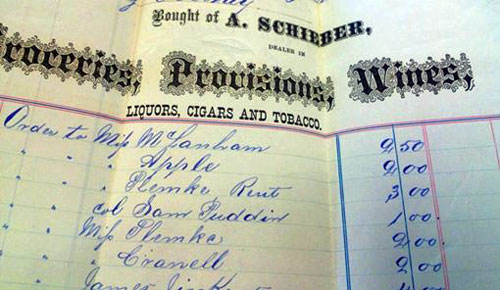 Bought of A. SCHIEBER,
DEALER IN
Groceries, Provisions, Wines,
LIQUORS, CIGARS AND TOBACCO.
Order to Miss McLanham 2,50
" " " Apple 2,00
" " " Plemke Rent 3,00
" " col Sam Puddin 1,00
" " Miss Plemke 2,00
" " " Cranell 2,00
" " James